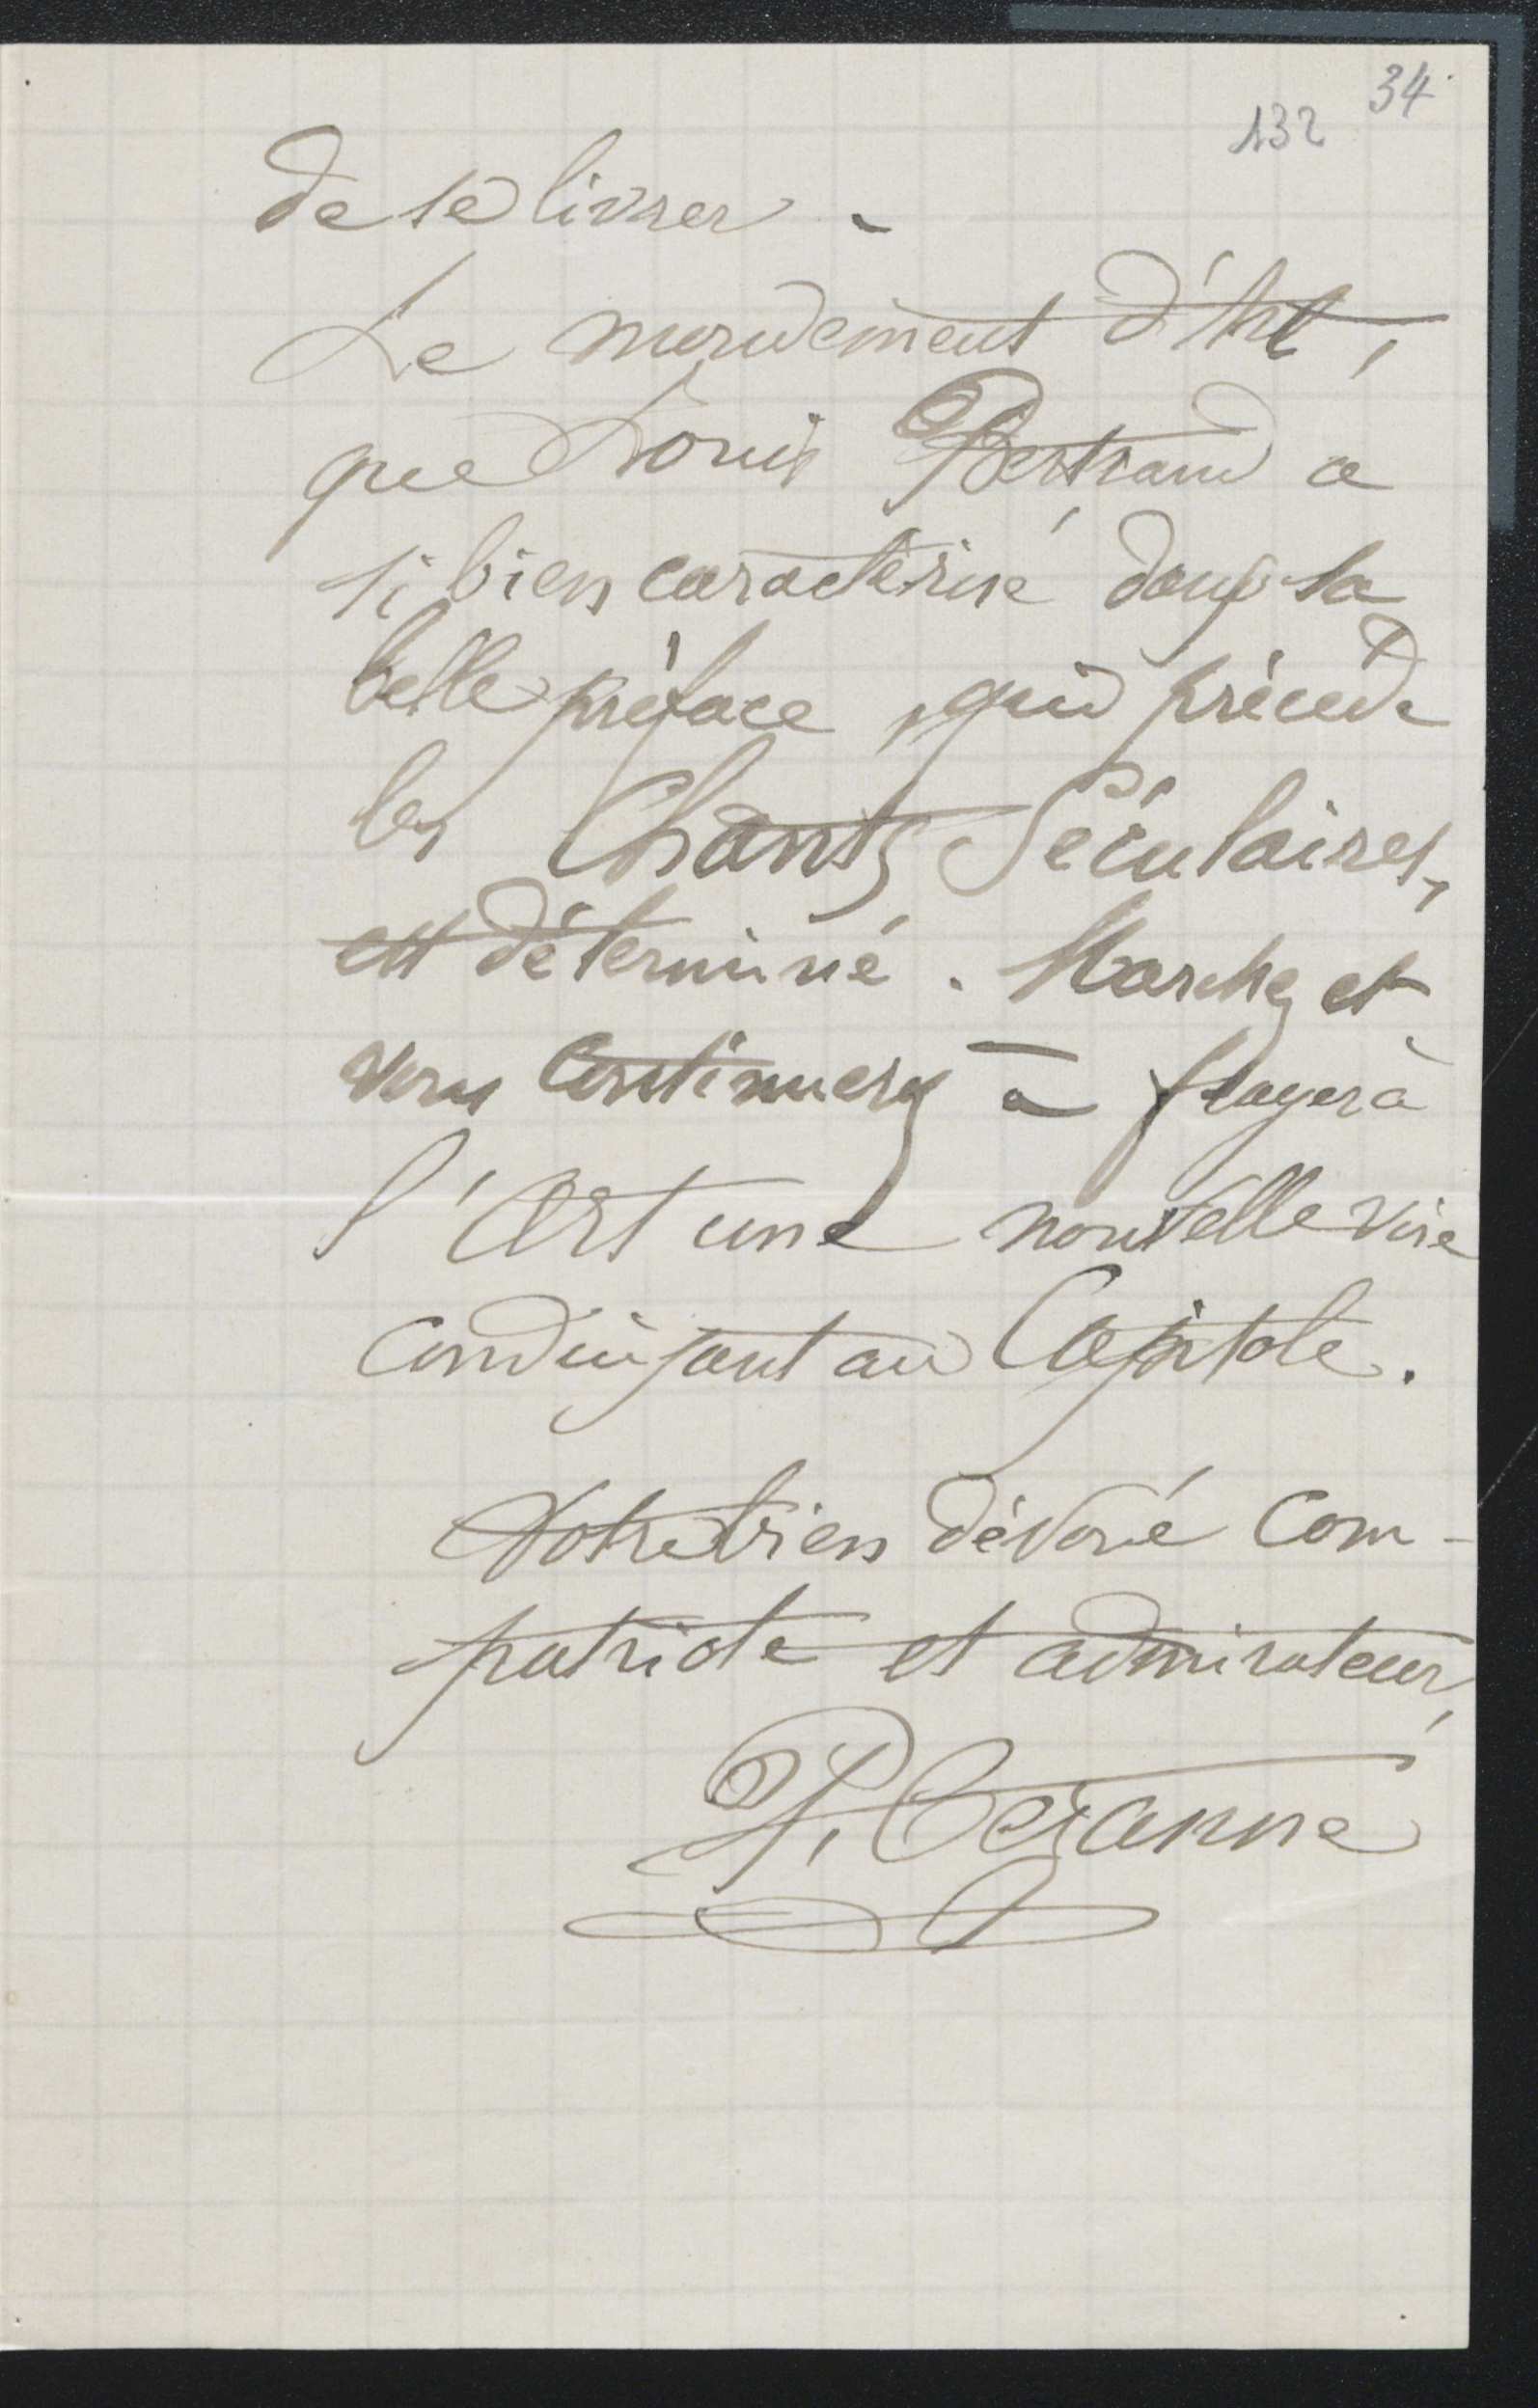 34
132
de se livrer -
Le mouvement d'Art,
que Louis Bertrand a
si bien caractérisé dans sa
belle préface, qui précède
les Chants Séculaires,
est déterminé. Marchez et
vous continuerez à frayer à
l'Art une nouvelle voie
conduisant au Capitole.
Votre bien dévoué com-
patriote et admirateur,
P. Cezanne